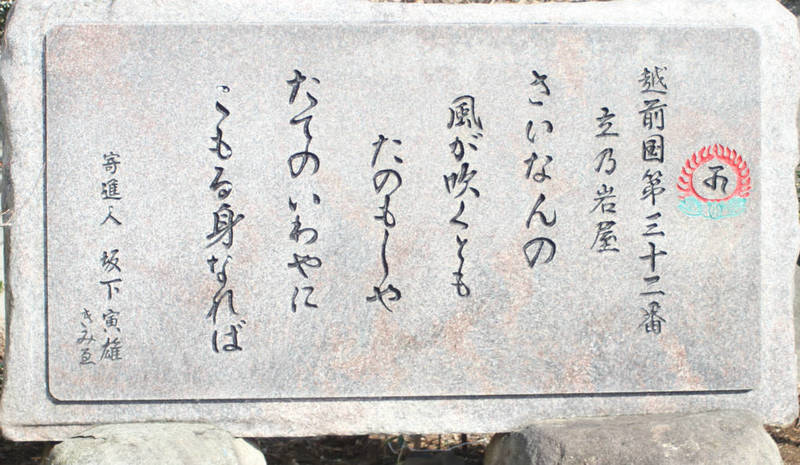 越前国第三十二番
立乃岩屋
さいなんの
風が吹くとも
たのもしや
たてのいわやに
こもる身なれば
寄進人 坂下寅雄
きみゑ